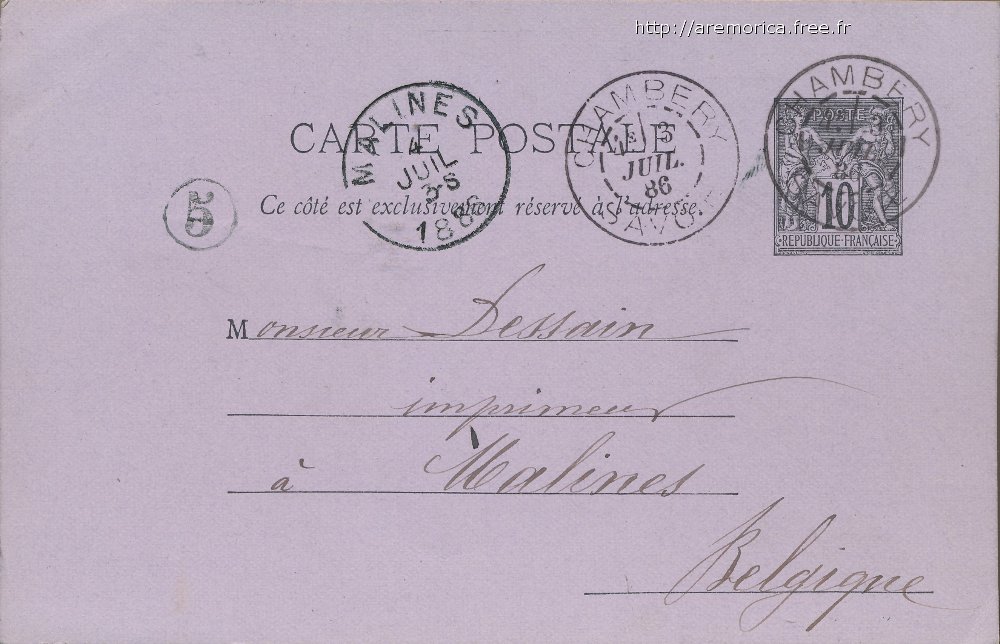 http://aremorica.free.fr
CARTE POSTALE
Ce côté est exclusivement réservé à l'adresse.
MALINES
4
JUIL
1886
CHAMBERY
3
JUIL.
86
SAVOIE
CHAMBERY
3
POSTE
10
REPUBLIQUE FRANÇAISE
5
Monsieur Dessain
imprimeur
à Malines
Belgique